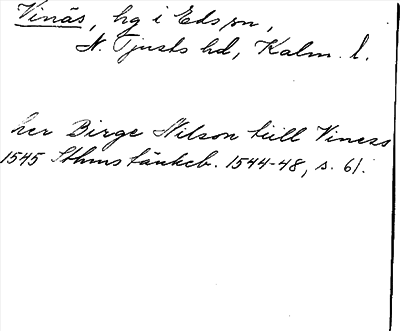 Vinäs, hg i Eds sn,
N. Tjusts hd, Kalm. l.
her Birge Nilson till Viness
1545 Sthms tänkeb. 1544-48, s. 61.